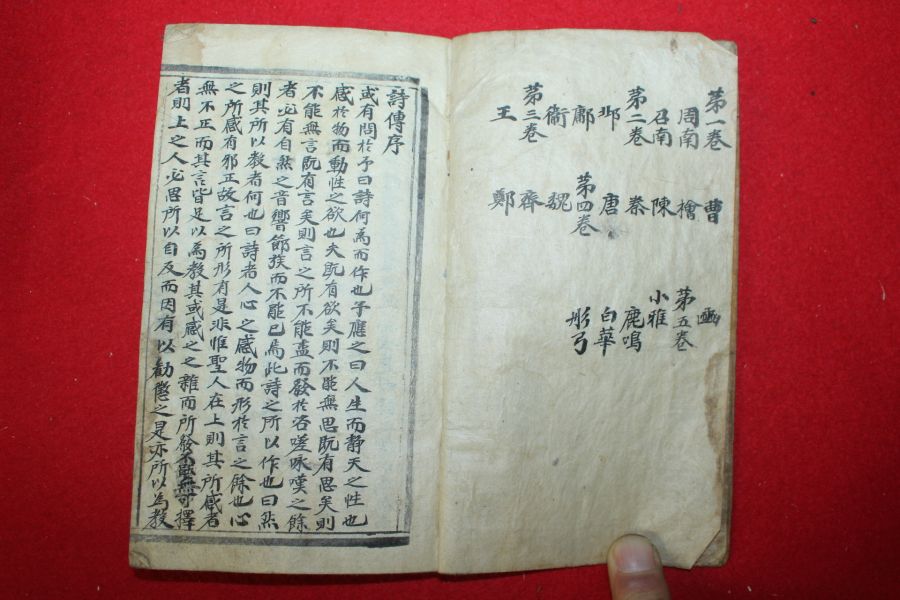 第一卷
周南
召南
第二卷
邶
鄘
衛
第三卷
王
鄭
齊
魏
第四卷
唐
秦
陳
檜
曹
豳
第五卷
小雅
鹿鳴
白華
彤弓
詩傳序
或有問於予曰詩何為而作也予應之曰人生而静天之性也
感於物而動性之欲也夫既有欲矣則不能無思既有思矣則
不能無言既有言矣則言之所不能盡而發於咨嗟咏嘆之餘
者必有自然之音響節族而不能已焉此詩之所以作也曰然
則其所以教者何也曰詩者人心之感物而形於言之餘也心
之所感有邪正故言之所形有是非惟聖人在上則其所感者
無不正而其言皆足以為教其或感之之雜而所發不能無可擇
者則上之人必思所以自反而因有以勸懲之是亦所以為教